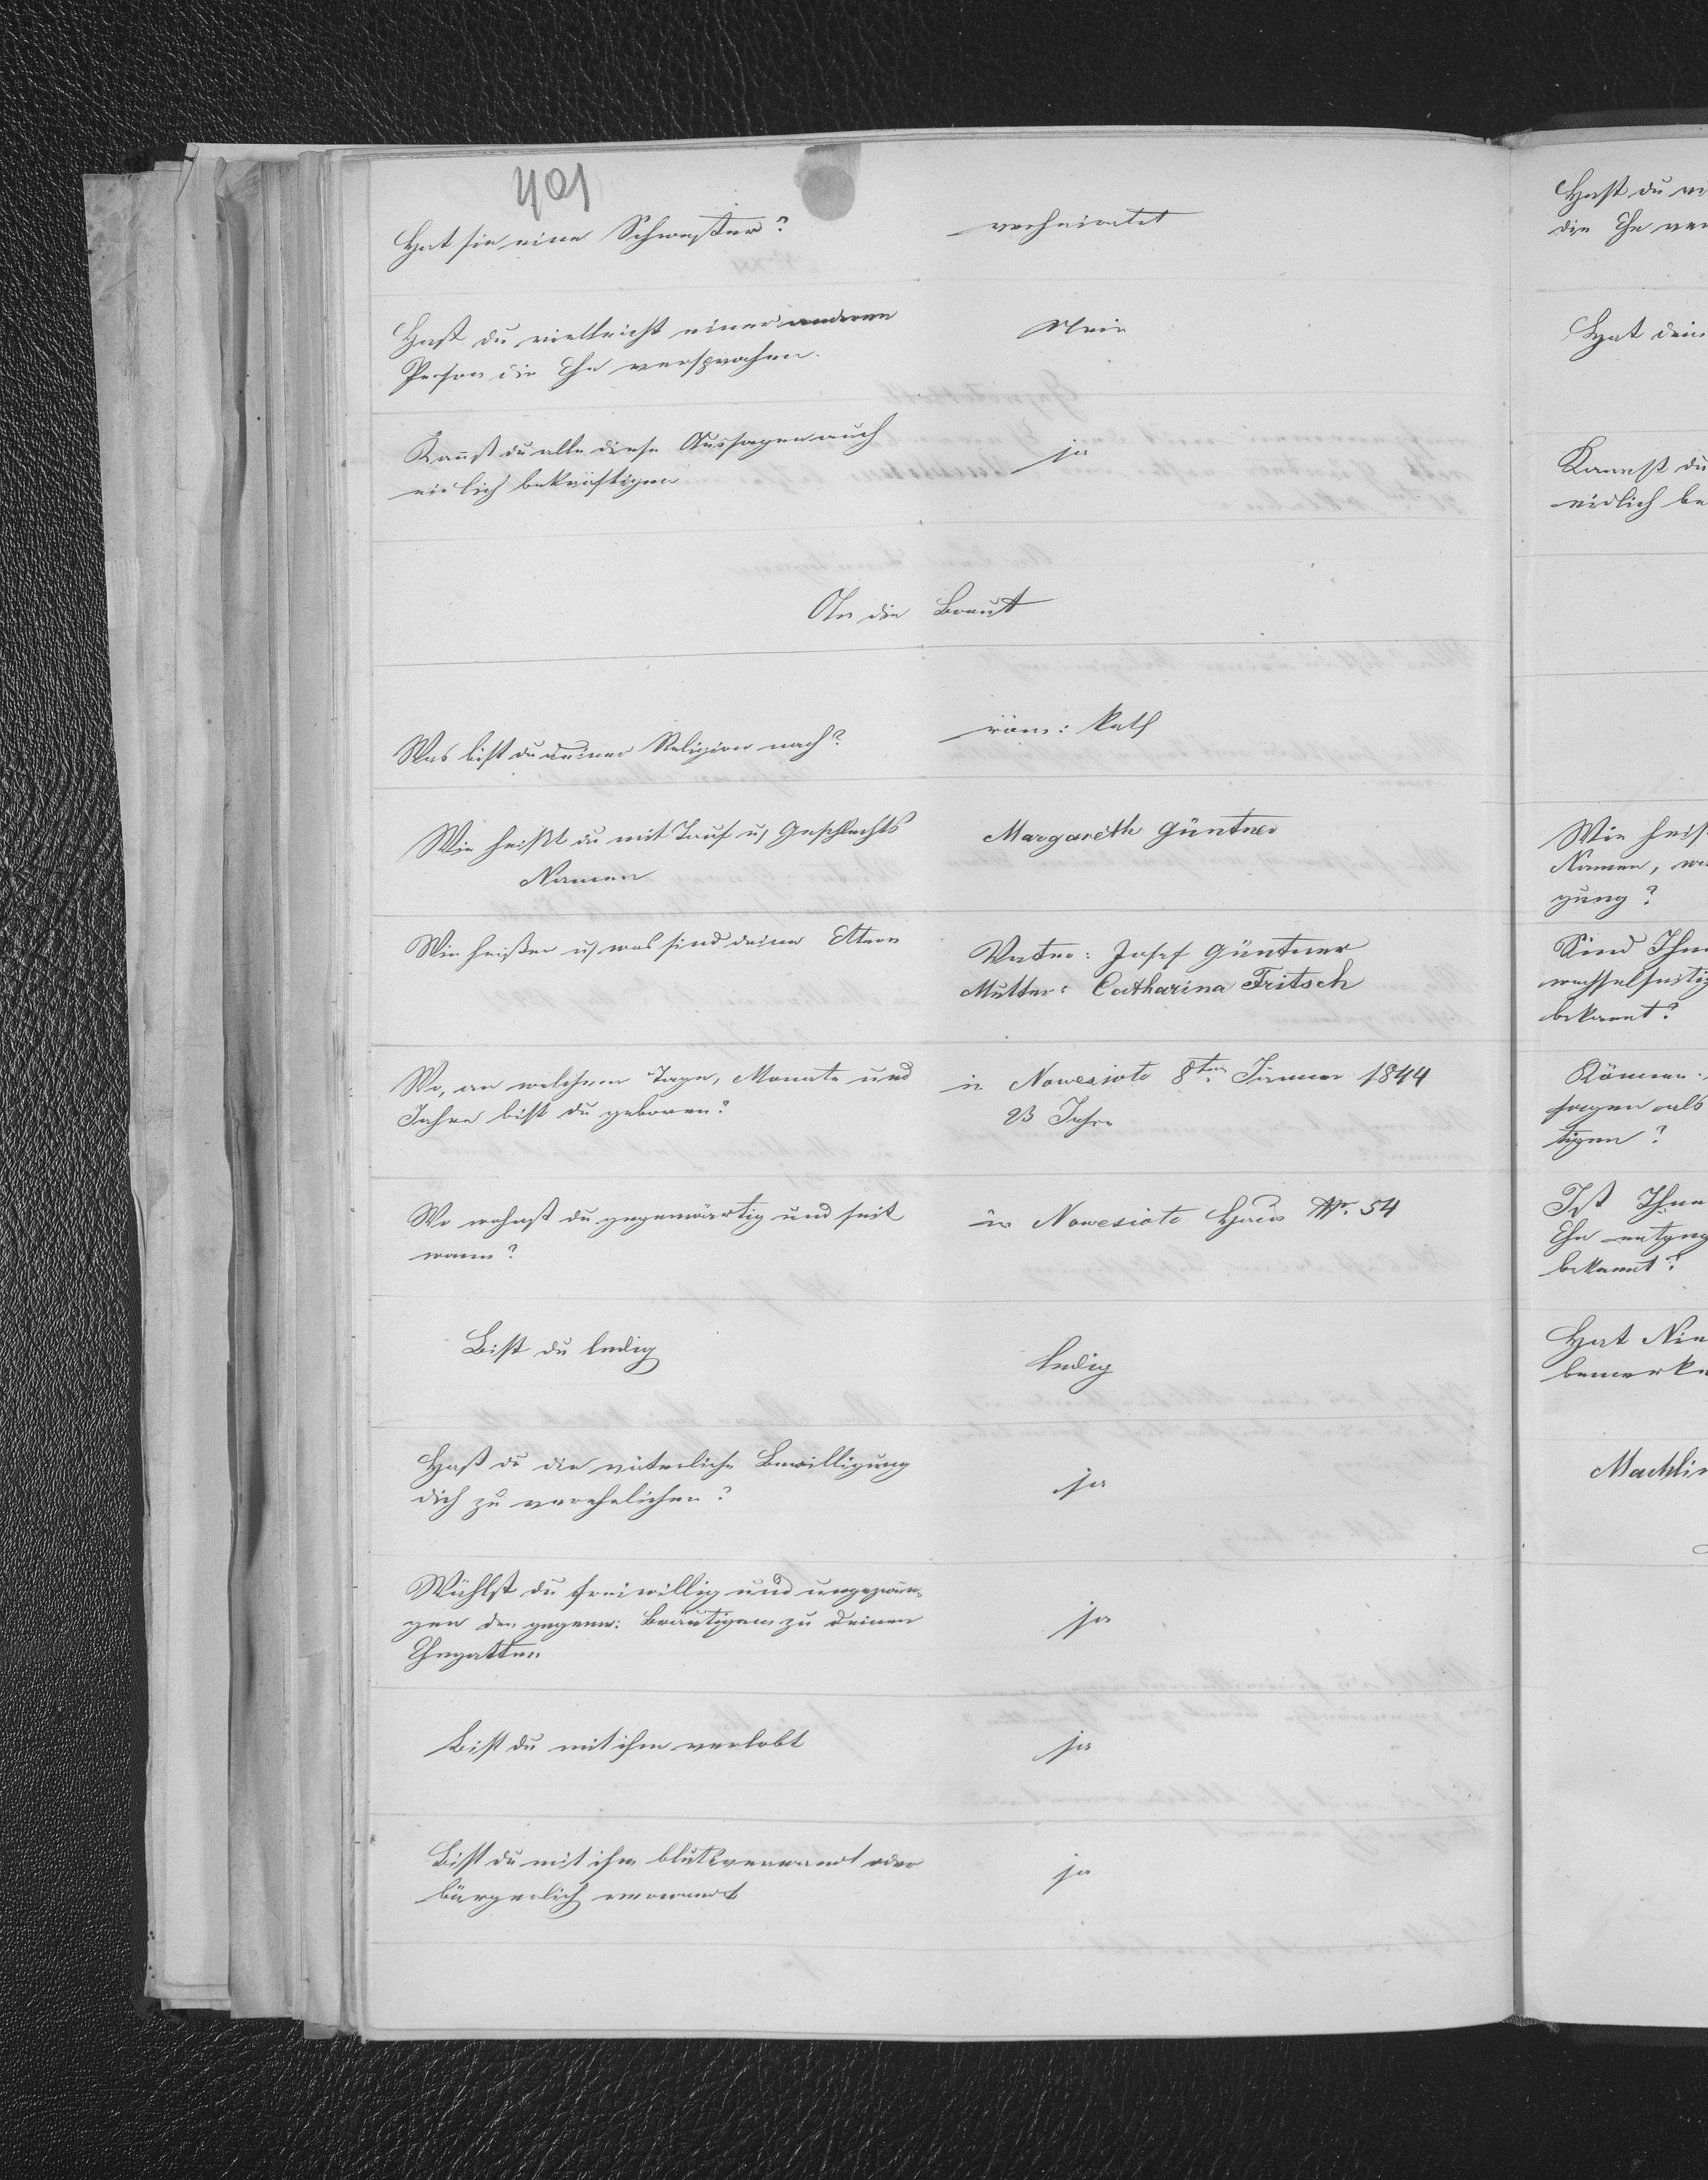 401
Hat sie eine Schwester? verheiratet
Hast du vielleicht einer anderen Nein
Person die Ehe versprochen.
Kannst du alle diese Aussagen auch ja
eidlich bekräftigen
An die Braut
Was bist du deiner Religion nach? röm: kath
Wie heißt du mit Tauf u Geschlechts Margareth Güntner
Namen
Wie heißen u was sind deine Eltern Vater: Josef Güntner
Mutter: Catharina Fritsch
Wo, an welchem Tage, Monate und in Nowesioło 8ten Jänner 1844
Jahre bist du geboren? 23 Jahre
Wo wohnst du gegenwärtig und seit in Nowesioło Haus Nr. 54
wann?
Bist du ledig ledig
Hast du die väterliche Bewilligung ja
dich zu verehelichen?
Wählst du freiwillig und ungezwun-
gen den gegenw: Bräutigam zu deinen ja
Ehegatten
Bist du mit ihm verlobt ja
Bist du mit ihm blutsverwandt oder ja
bürgerlich verwandt
Hast du
die Ehe
Hat dein
Kannst du
eidlich be
Wie heiß
Namen,
gung?
Sind Ihne
wechselseitig
bekannt?
Können
sagen als
tigen?
Ist Ihne
Ehe entgeg
bekannt?
Hat Nie
bemerke
Machlin